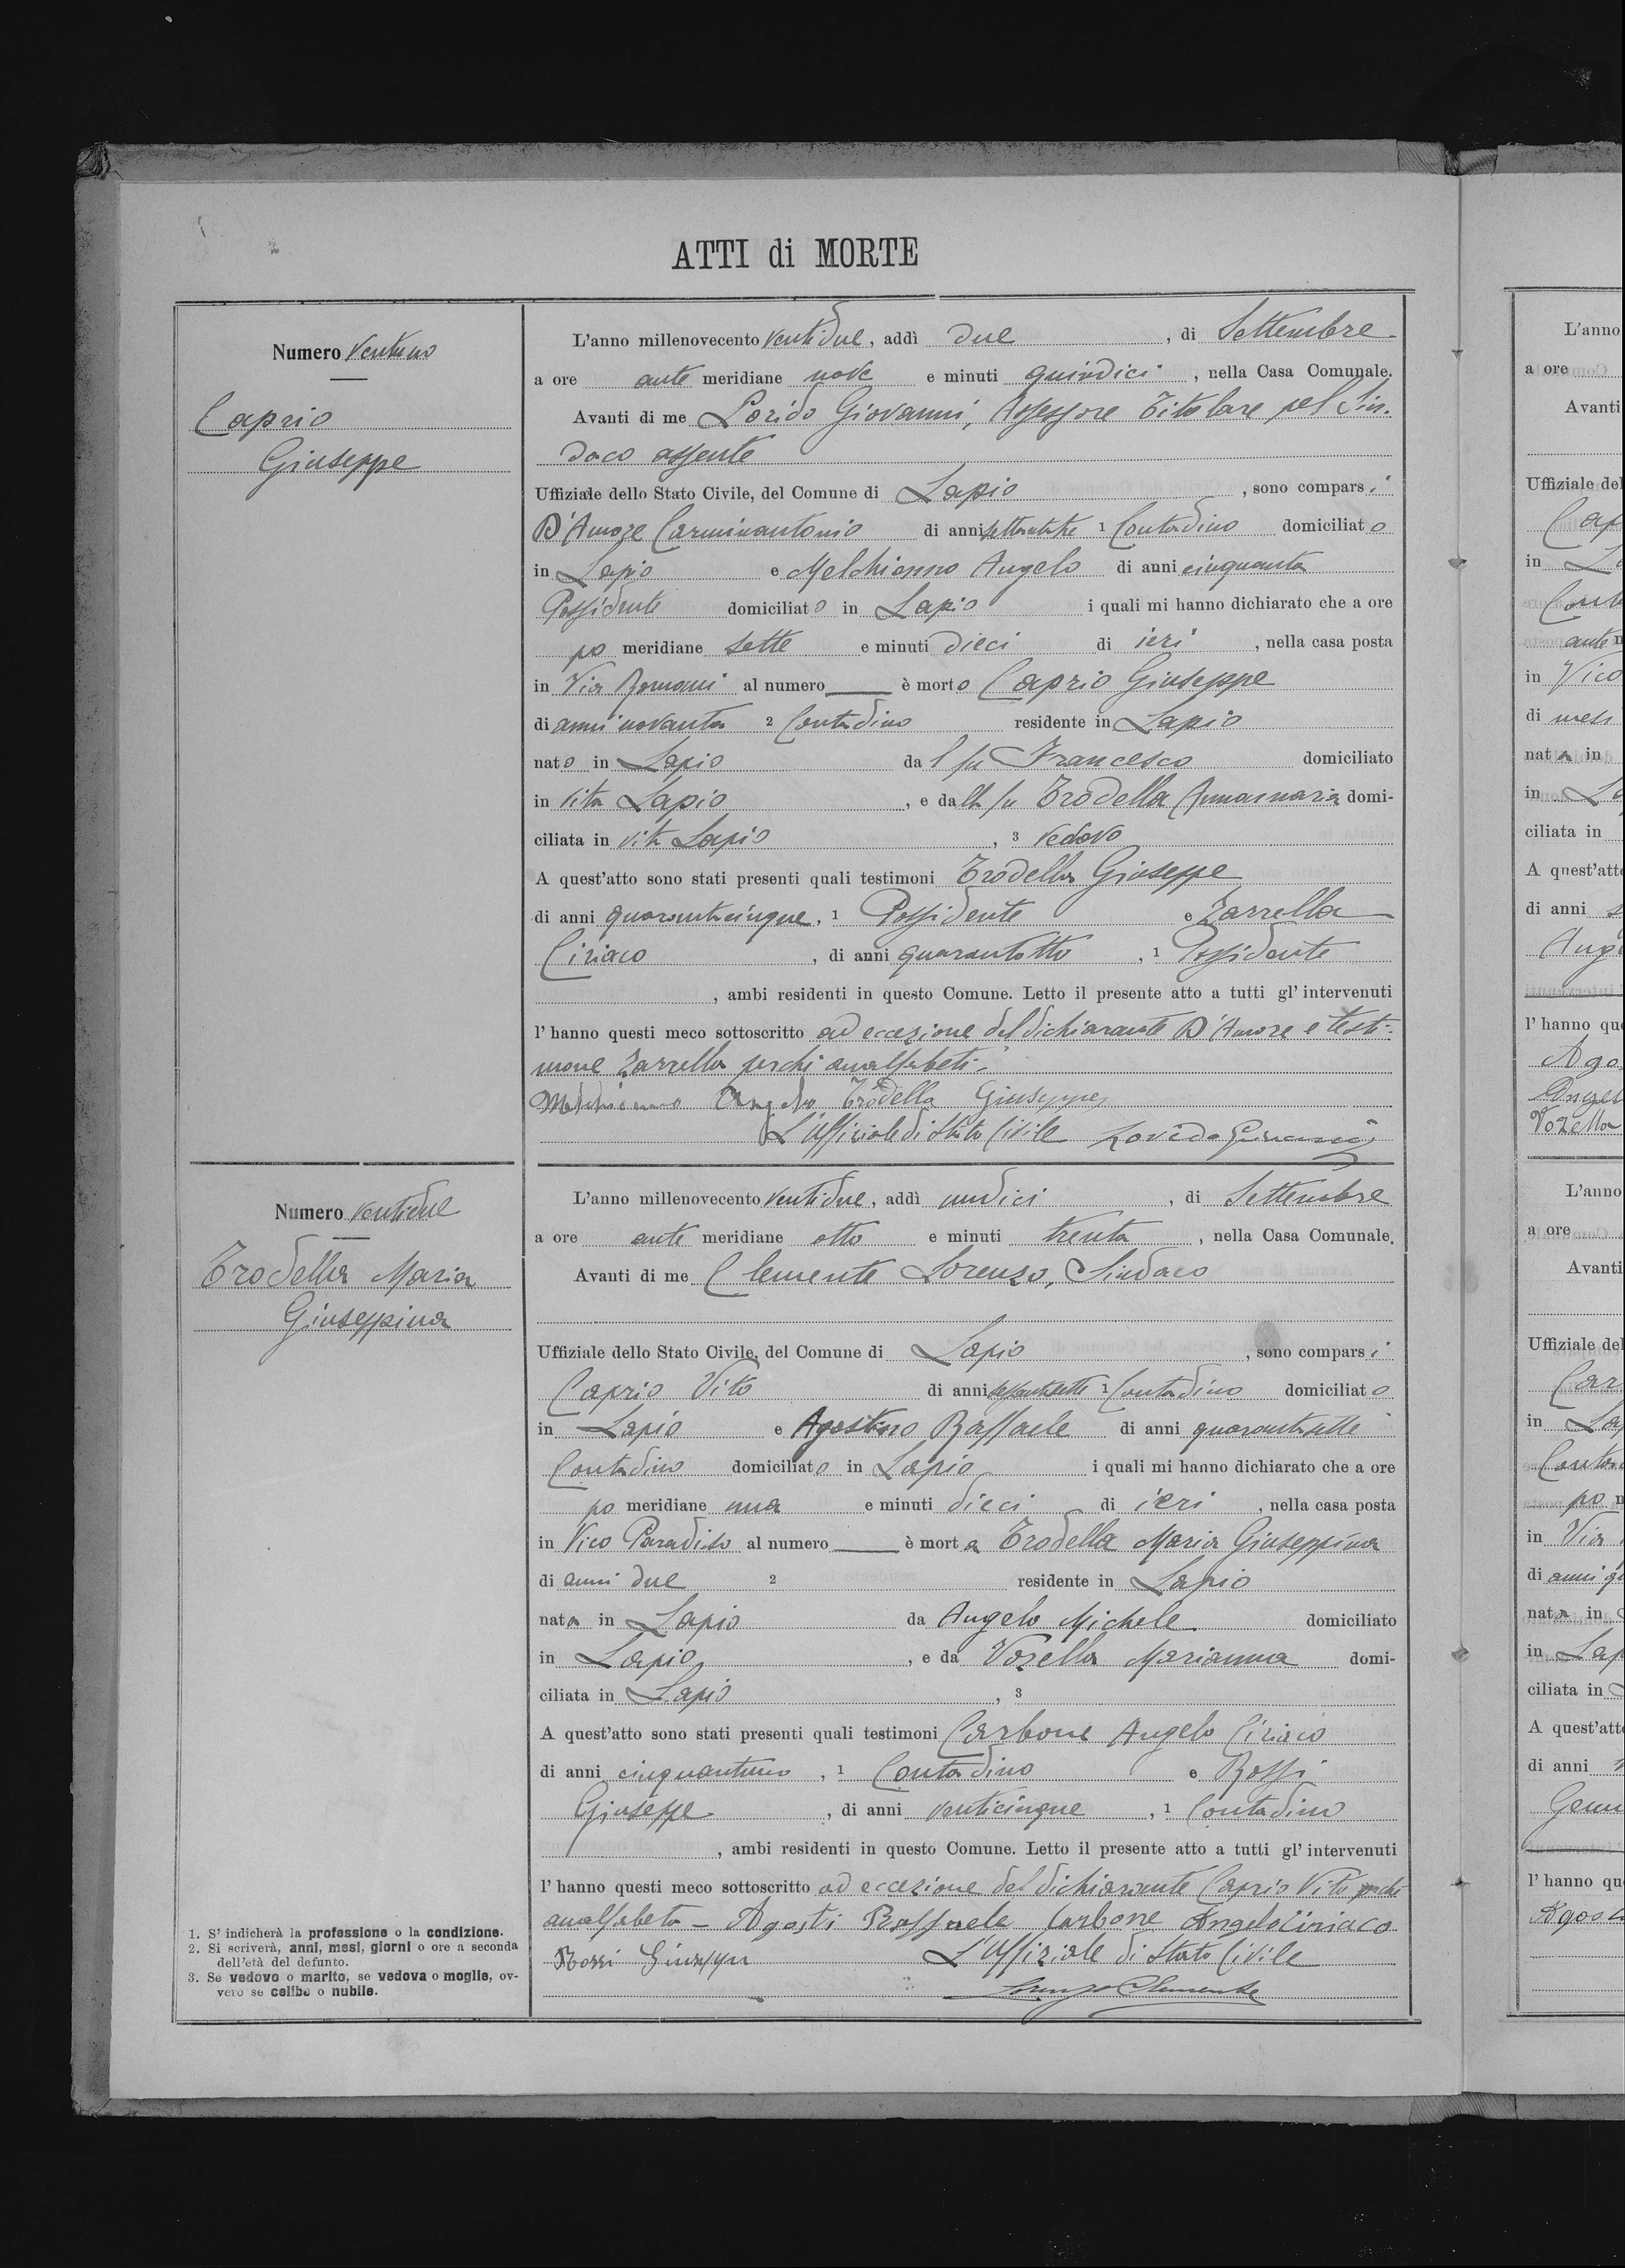 ATTI di MORTE
Numero Ventuno
Caprio
Giuseppe
L'anno millenovecento ventidue, addì due, di Settembre
a ore ante meridiane nove e minuti quindici, nella Casa Comunale.
Avanti di me Lorido Giovanni, Assessore Titolare pel Sin-
daco assente
Uffiziale dello Stato Civile, del Comune di Lapio, sono comparsi
D'Amore Carminantonio di anni settantatre 1 Contadino domiciliato
in Lapio e Melchionno Angelo di anni cinquanta
Possidente domiciliato in Lapio i quali mi hanno dichiarato che a ore
po meridiane sette e minuti dieci di ieri, nella casa posta
in Via Romani al numero è morto Caprio Giuseppe
di anni novanta 2 Contadino residente in Lapio
nato in Lapio dal fu Francesco domiciliato
in vita Lapio, e dalla fu Trodella Annamaria domi-
ciliata in vita Lapio, 3 vedovo
A quest'atto sono stati presenti quali testimoni Trodella Giuseppe
di anni quarantacinque, 1 Possidente e Zarrella
Ciriaco, di anni quarantotto, 1 Possidente
, ambi residenti in questo Comune. Letto il presente atto a tutti gl'intervenuti
l'hanno questi meco sottoscritto ad eccezione del dichiarante D'Amore e testi-
mone Zarrella perchè analfabeti.
Melchionno Angelo Trodella Giuseppe
L'Uffiziale di Stato Civile Lorido Giovanni
Numero ventidue
Trodella Maria
Giuseppina
L'anno millenovecento ventidue, addì undici, di Settembre
a ore ante meridiane otto e minuti trenta, nella Casa Comunale.
Avanti di me Clemente Lorenzo, Sindaco
Uffiziale dello Stato Civile, del Comune di Lapio, sono comparsi
Caprio Vito di anni sessantasette 1 Contadino domiciliato
in Lapio e Agostino Raffaele di anni quarantasette
Contadino domiciliato in Lapio i quali mi hanno dichiarato che a ore
po meridiane una e minuti dieci di ieri, nella casa posta
in Vico Paradiso al numero è morta Trodella Maria Giuseppina
di anni due 2 residente in Lapio
nata in Lapio da Angelo Michele domiciliato
in Lapio, e da Vozella Marianna domi-
ciliata in Lapio, 3
A quest'atto sono stati presenti quali testimoni Carbone Angelo Ciriaco
di anni cinquantuno, 1 Contadino e Rossi
Giuseppe, di anni venticinque, 1 Contadino
, ambi residenti in questo Comune. Letto il presente atto a tutti gl'intervenuti
l'hanno questi meco sottoscritto ad eccezione del dichiarante Caprio Vito perchè
analfabeta - Agosti Raffaele Carbone Angelo Ciriaco
Rossi Giuseppe L'Uffiziale di Stato Civile
Lorenzo Clemente
1. S'indicherà la professione o la condizione.
2. Si scriverà, anni, mesi, giorni o ore a seconda
dell'età del defunto.
3. Se vedovo o marito, se vedova o moglie, ov-
vero se celibe o nubile.
L'anno
a ore
Avanti
Uffiziale del
Cap
in
ante
in Vico
di mesi
nata in
in
ciliata in
A quest'atto
di anni
Ange
l'hanno que
Ago
Angel
Vozella
L'anno
a ore
Avanti
Uffiziale del
Car
in Lap
Contad
po
in Via
di anni
nata in
in Lap
ciliata in
A quest'atto
di anni
Genn
l'hanno qu
Agos